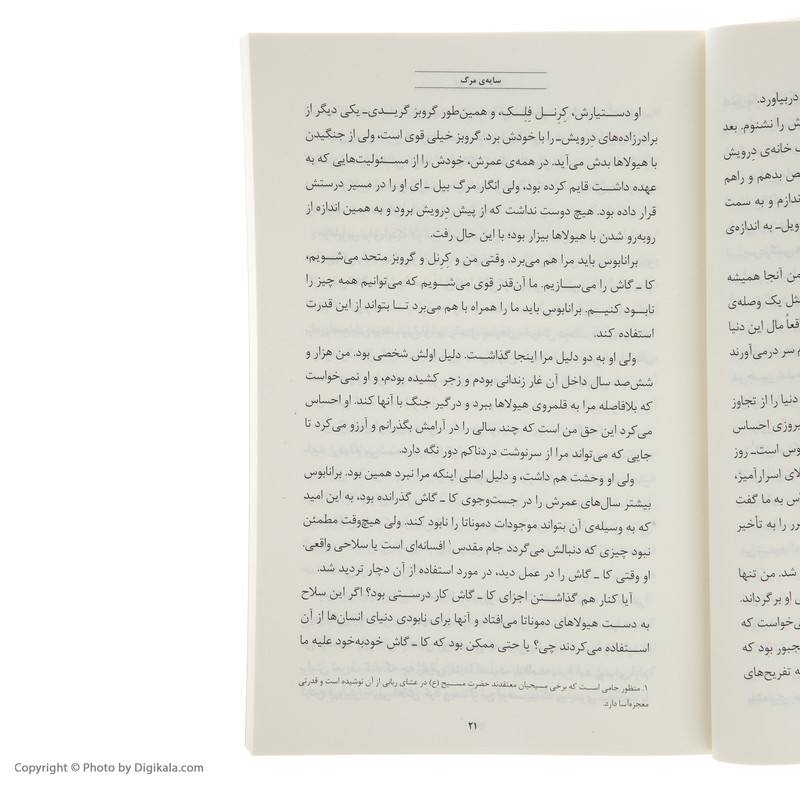 سایه‌ی مرگ
او دستیارش، کِرنل فِلِک، و همین‌طور گروبز گریدی ـ یکی دیگر از
برادرزاده‌های دِرویش ـ را با خودش برد. گروبز خیلی قوی است، ولی از جنگیدن
با هیولاها بدش می‌آید. در همه‌ی عمرش، خودش را از مسئولیت‌هایی که به
عهده داشت قایم کرده بود، ولی انگار مرگ بیل ـ ای او را در مسیر درستش
قرار داده بود. هیچ دوست نداشت که از پیش دِرویش برود و به همین اندازه از
روبه‌رو شدن با هیولاها بیزار بود؛ با این حال رفت.
برانابوس باید مرا هم می‌برد. وقتی من و کِرنل و گروبز متحد می‌شویم،
کا ـ گاش را می‌سازیم. ما آن‌قدر قوی می‌شویم که می‌توانیم همه چیز را
نابود کنیم. برانابوس باید ما را همراه با هم می‌برد تا بتواند از این قدرت
استفاده کند.
ولی او به دو دلیل مرا اینجا گذاشت. دلیل اولش شخصی بود. من هزار و
شش‌صد سال داخل آن غار زندانی بودم و زجر کشیده بودم، و او نمی‌خواست
که بلافاصله مرا به قلمروی هیولاها ببرد و درگیر جنگ با آنها کند. او احساس
می‌کرد این حق من است که چند سالی را در آرامش بگذرانم و آرزو می‌کرد تا
جایی که می‌تواند مرا از سرنوشت دردناکم دور نگه دارد.
ولی او وحشت هم داشت، و دلیل اصلی اینکه مرا نبرد همین بود. برانابوس
بیشتر سال‌های عمرش را در جست‌وجوی کا ـ گاش گذرانده بود، به این امید
که به وسیله‌ی آن بتواند موجودات دموناتا را نابود کند. ولی هیچ‌وقت مطمئن
نبود چیزی که دنبالش می‌گردد جام مقدس۱ افسانه‌ای است یا سلاحی واقعی.
او وقتی کا ـ گاش را در عمل دید، در مورد استفاده از آن دچار تردید شد.
آیا کنار هم گذاشتن اجزای کا ـ گاش کار درستی بود؟ اگر این سلاح
به دست هیولاهای دموناتا می‌افتاد و آنها برای نابودی دنیای انسان‌ها از آن
استفاده می‌کردند چی؟ یا حتی ممکن بود که کا ـ گاش خودبه‌خود علیه ما
۱. منظور جامی است که برخی مسیحیان معتقدند حضرت مسیح (ع) در عشای ربانی از آن نوشیده است و قدرتی
معجزه‌آسا دارد.
۲۱
دربیاورد.
ش را نشنوم. بعد
خانه‌ی دِرویش
ص بدهم و راهم
ندازم و به سمت
ویل ـ به اندازه‌ی
من آنجا همیشه
ثل یک وصله‌ی
قعاً مال این دنیا
م سر درمی‌آورند
دنیا را از تجاوز
یروزی احساس
وس است ـ روز
لای اسرارآمیز،
س به ما گفت
رر را به تأخیر
شد. من تنها
ی او برگرداند.
ی‌خواست که
جبور بود که
ه تفریح‌های
Copyright © Photo by Digikala.com